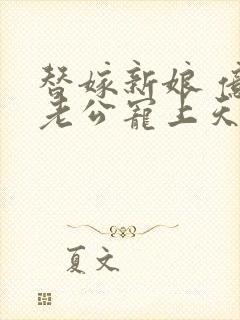 替嫁新娘
老公宠上天
夏文